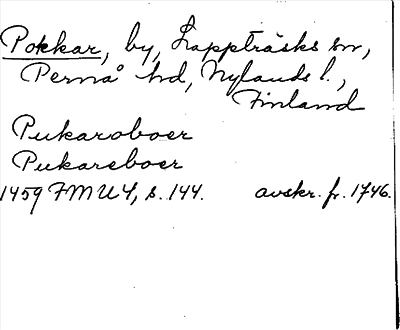 Pokkar, by, Lappträsks sn,
Pernå hd, Nylands l.,
Finland
Pukaroboer
Pukareboer
1459 FMU 4, s. 144. avskr. fr. 1746.